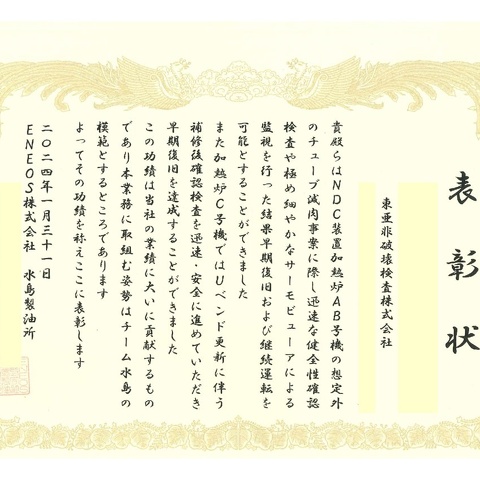 表彰状
東亜非破壊検査株式会社
貴殿らはNDC装置加熱炉AB号機の想定外
のチューブ減肉事案に際し迅速な健全性確認
検査や極め細やかなサーモビューアによる
監視を行った結果早期復旧および継続運転を
可能とすることができました
また加熱炉C号機ではUベンド更新に伴う
補修後確認検査を迅速・安全に進めていただき
早期復旧を達成することができました
この功績は当社の業績に大いに貢献するもの
であり本業務に取組む姿勢はチーム水島の
模範とするところであります
よってその功績を称えここに表彰します
二〇二四年一月三十一日
ENEOS株式会社 水島製油所